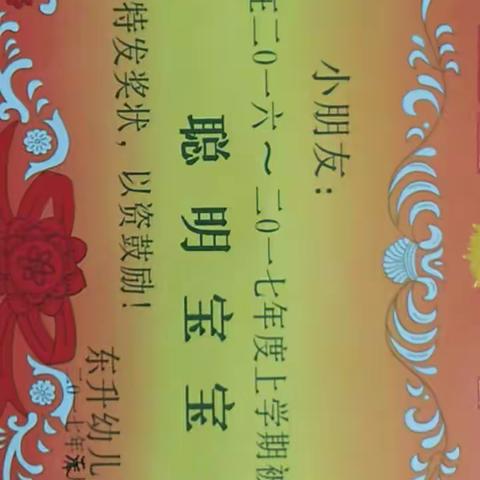 小朋友：
在二〇一六～二〇一七年度上学期被
聪明宝宝
特发奖状，以资鼓励！
东升幼儿
二〇一七年